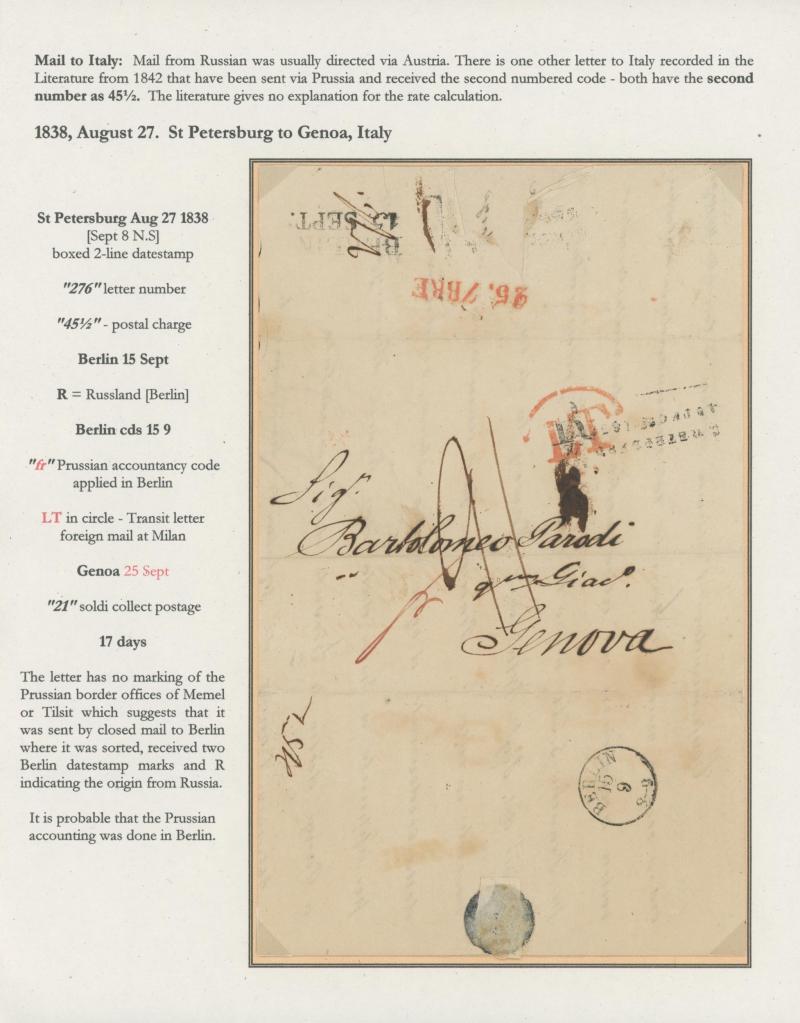 Mail to Italy: Mail from Russian was usually directed via Austria. There is one other letter to Italy recorded in the
Literature from 1842 that have been sent via Prussia and received the second numbered code - both have the second
number as 45½. The literature gives no explanation for the rate calculation.
1838, August 27. St Petersburg to Genoa, Italy
St Petersburg Aug 27 1838
[Sept 8 N.S]
boxed 2-line datestamp
"276" letter number
"45½" - postal charge
Berlin 15 Sept
R = Russland [Berlin]
Berlin cds 15 9
"fr" Prussian accountancy code
applied in Berlin
LT in circle - Transit letter
foreign mail at Milan
Genoa 25 Sept
"21" soldi collect postage
17 days
The letter has no marking of the
Prussian border offices of Memel
or Tilsit which suggests that it
was sent by closed mail to Berlin
where it was sorted, received two
Berlin datestamp marks and R
indicating the origin from Russia.
It is probable that the Prussian
accounting was done in Berlin.
BERLIN
15 SEPT.
25. 7BRE
LT
Sigr.
Bartolomeo Parodi
qm Giaco.
Genova
fr
BERLIN
15
9
6-8